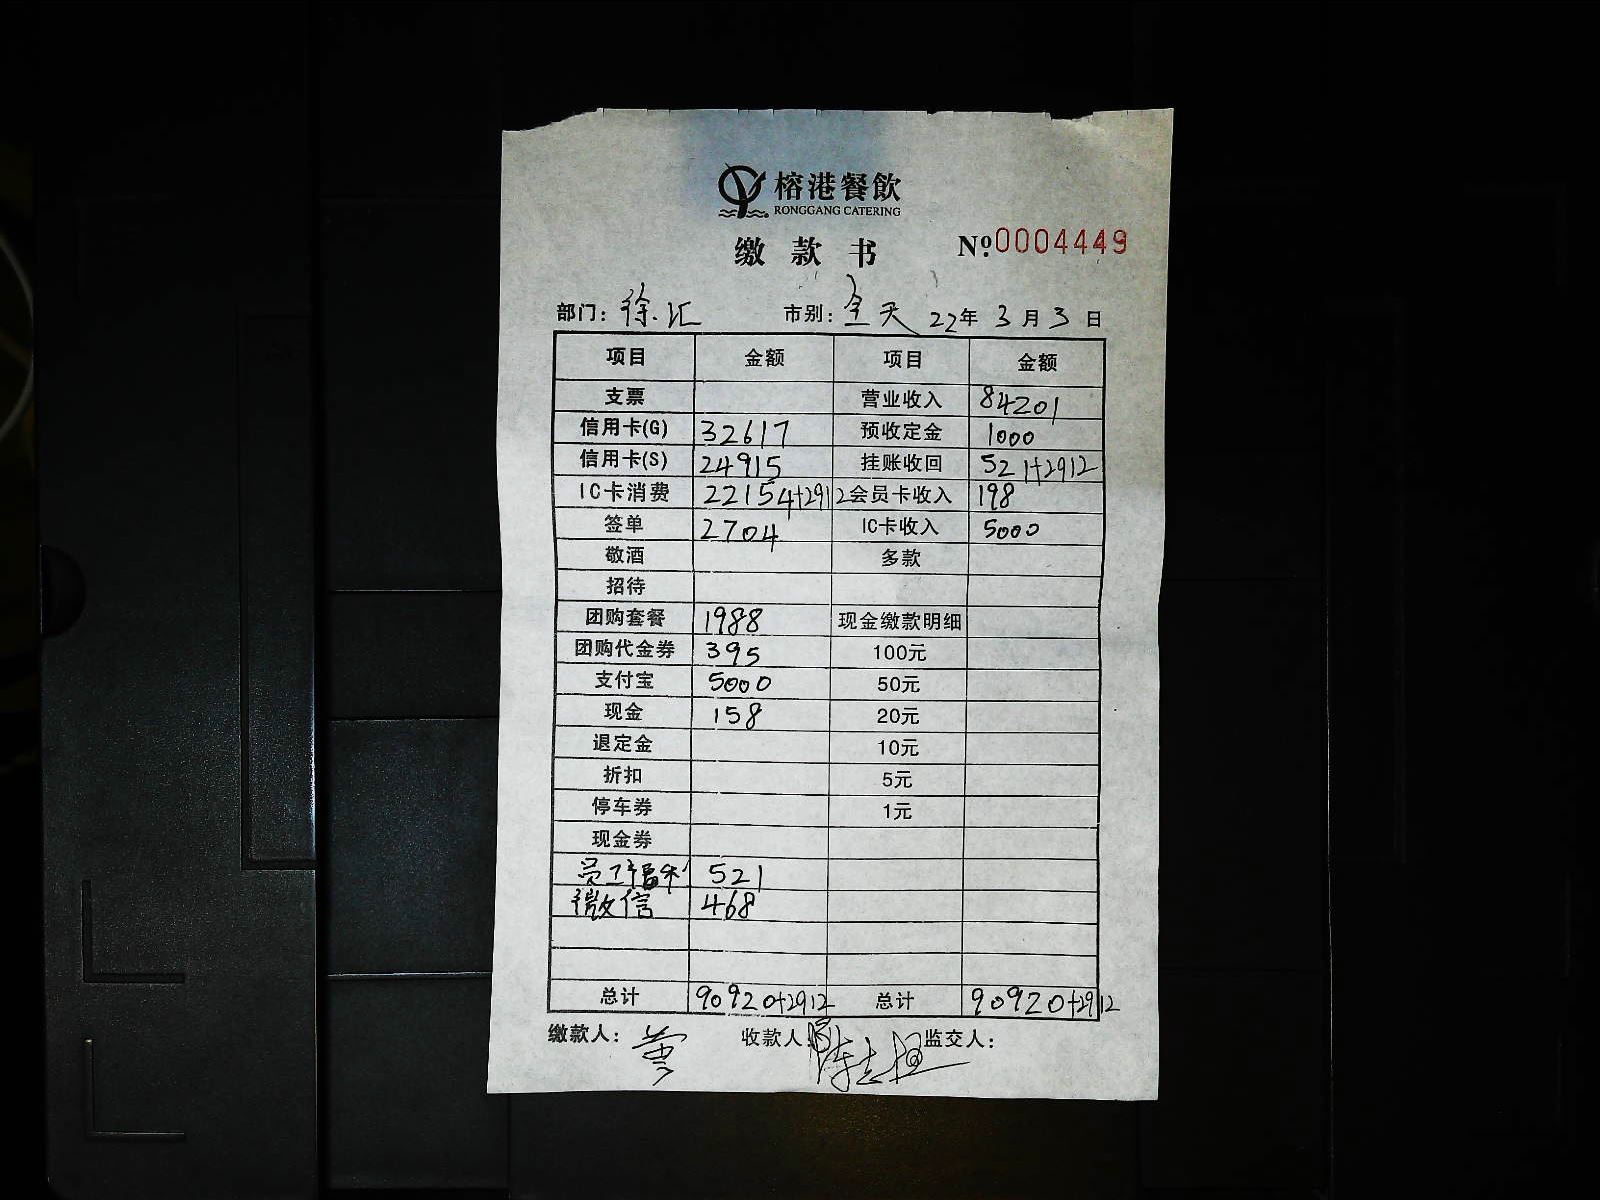 榕港餐飲
RONGGANG CATERING
缴款书 Nº0004449
部门：徐汇 市别：全天 22年 3月 3日
项目 金额 项目 金额
支票 营业收入 84201
信用卡(G) 32617 预收定金 1000
信用卡(S) 24915 挂账收回 521+2912
IC卡消费 22154+2912 会员卡收入 198
签单 2704 IC卡收入 5000
敬酒 多款
招待
团购套餐 1988 现金缴款明细
团购代金券 395 100元
支付宝 5000 50元
现金 158 20元
退定金 10元
折扣 5元
停车券 1元
现金券
员工福利 521
微信 468
总计 90920+2912 总计 90920+2912
缴款人： 收款人 监交人：